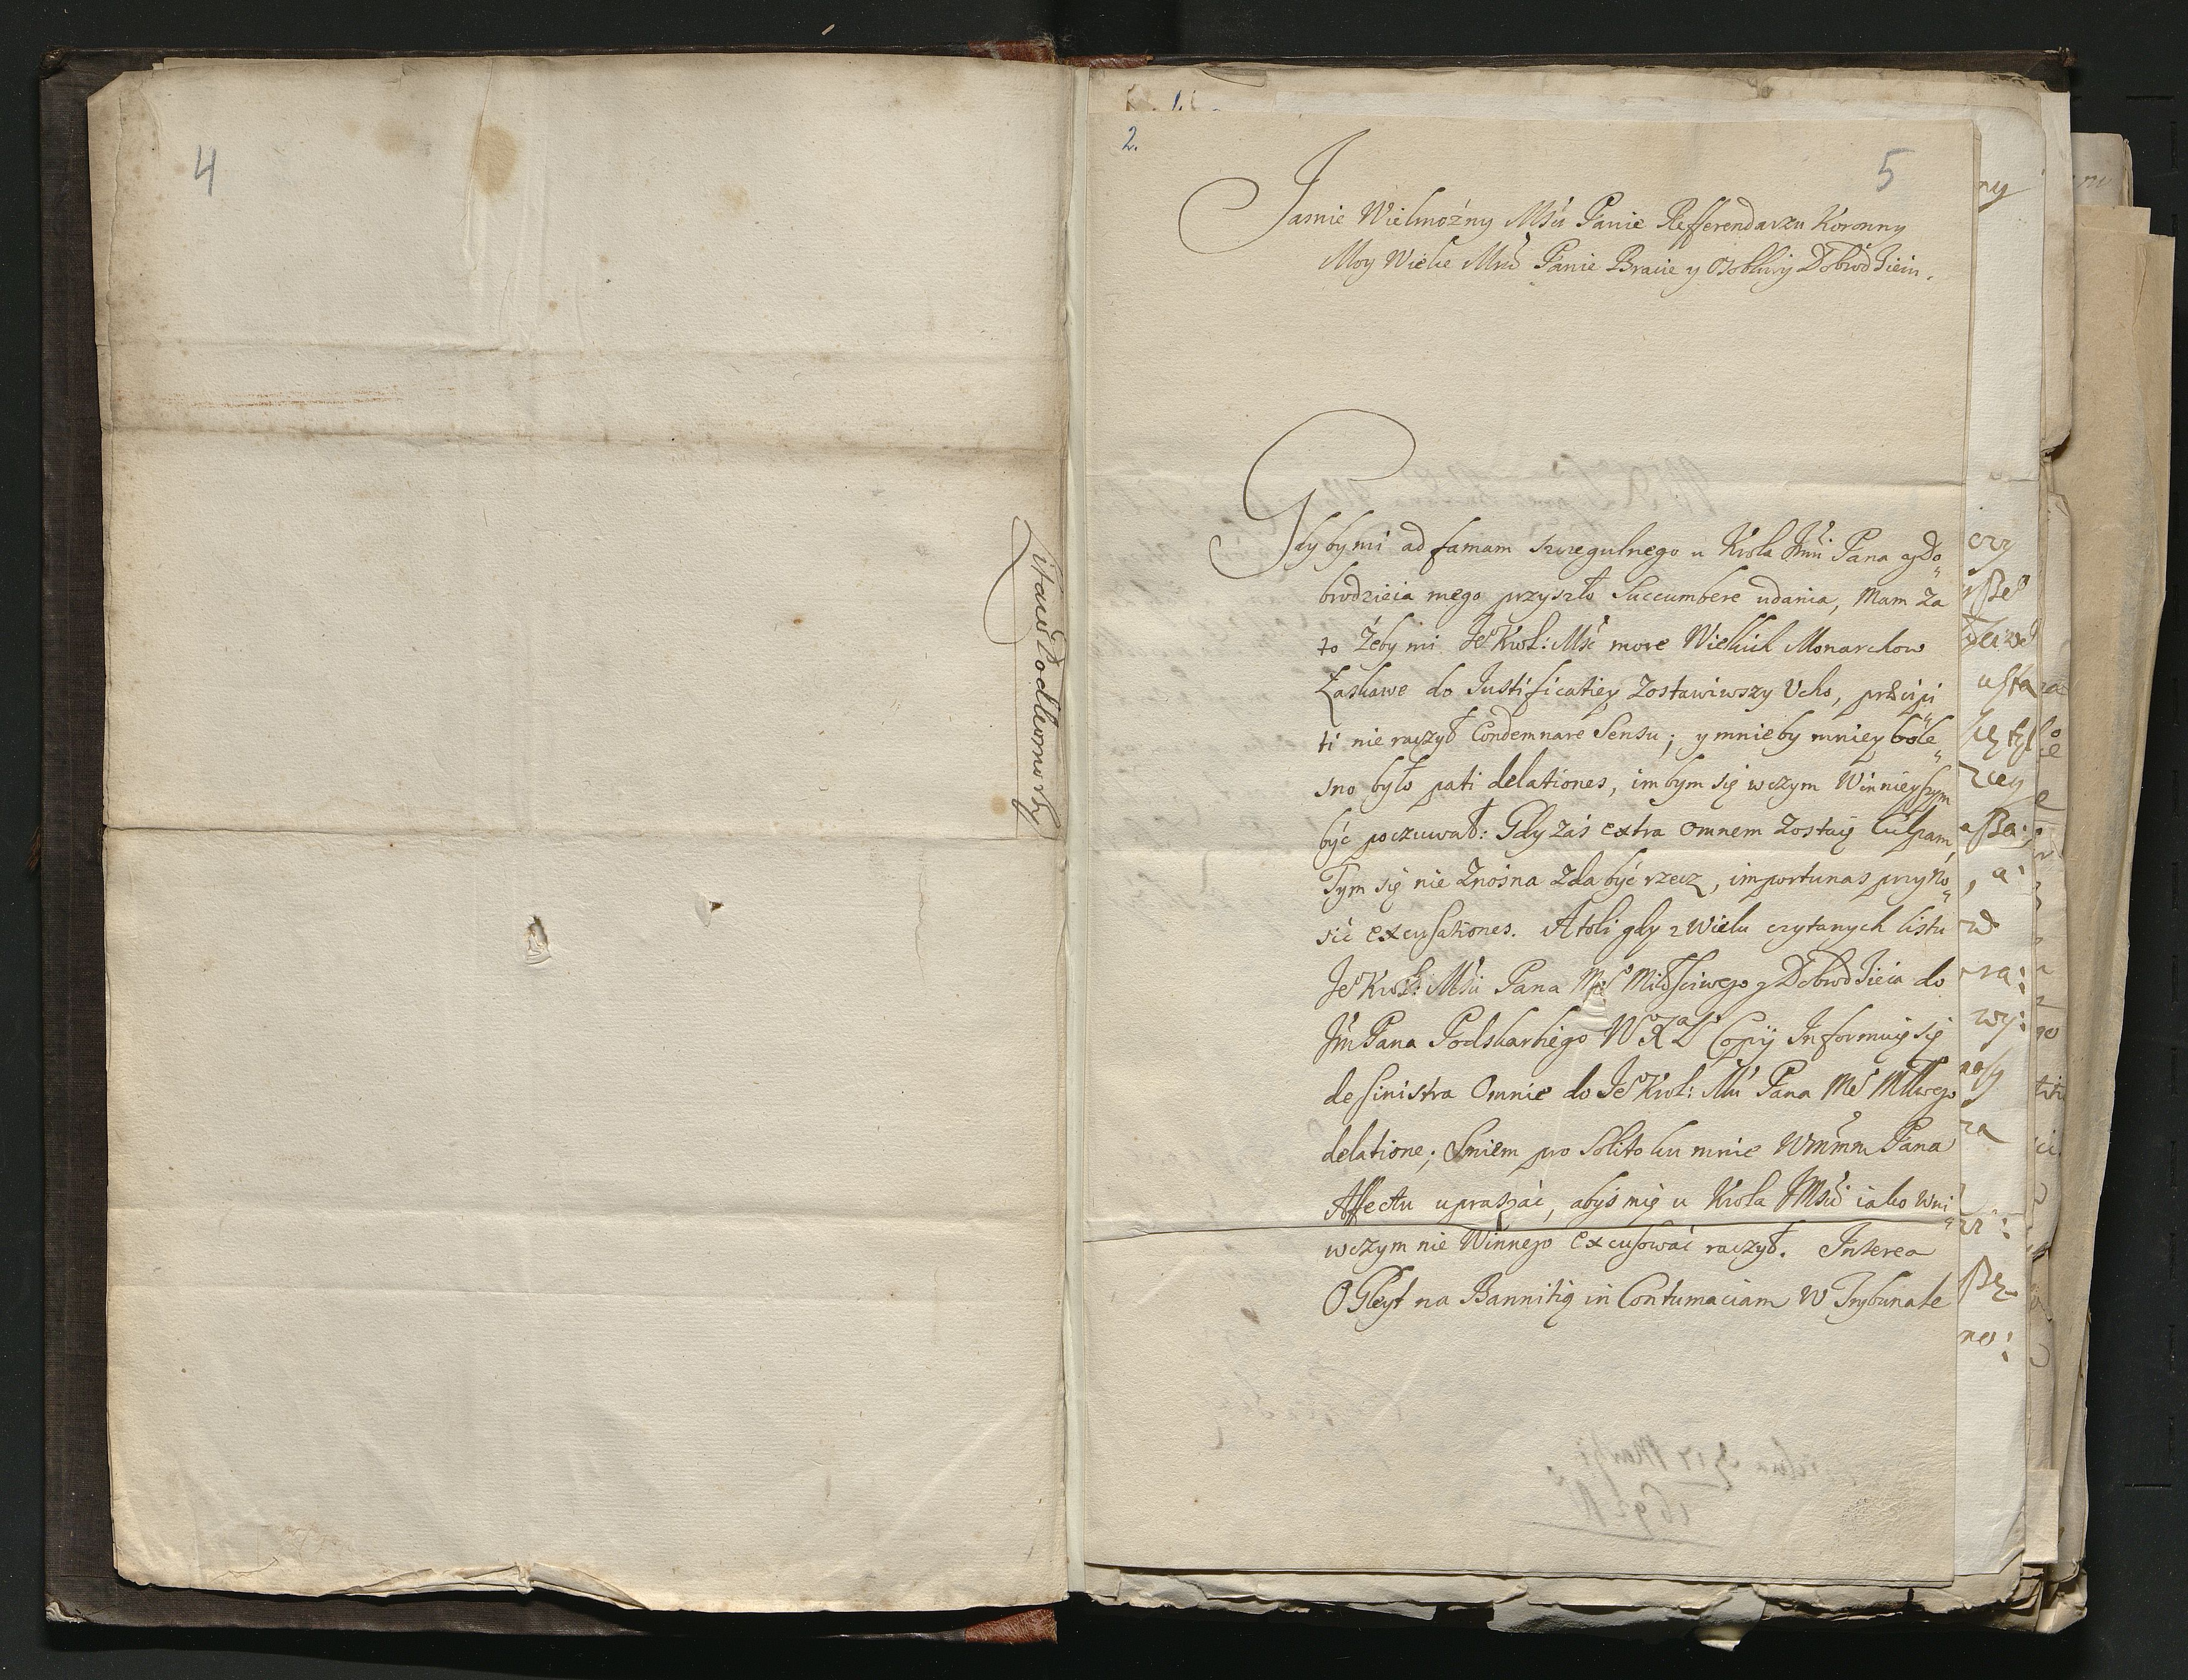 4
Litaw Podkomorzy
1.
2.
5
Jasnie Wielmożny Mści Panie Refferendarzu Koronny
Moy Wielce Mści Panie Bracie y Osobliwy Dobrodzieiu.
Gdyby mi ad famam szczegulnego u Krola Jmći Pana y Do„
brodzieia mego przyszło Succumbere udania, Mam za
to żeby mi Je° Krol: Mść more Wielkich Monarchow
Łaskawe do Justificatiey zostawiwszy Ucho, præcipi„
ti nie raczył Condemnare Sensu; y mnie by mniey bole„
sno było pati delationes, im bym się w czym Winnieyszym
być poczuwał: Gdy zaś extra omnem zostaię Culpam,
Tym się nie Znośna zda być rzecz, importunas przyno„
sić excusationes. Atoli gdy z Wielu czytanych listu
Je° Krol: Mści Pana Me° Miłościwego y Dobrodzieia do
Jm Pana Podskarbiego W X L Copij Informuię się
de sinistra O mnie do Je° Krol: Mći Pana Me° Młłwego
delatione; Smiem pro Solito ku mnie Wmm Pana
Affectu upraszać, abyś mię u Krola JMści iako w ni„
wczym nie Winnego Excusować raczył. Interea
O Gleyt na Bannitią in Contumaciam W Trybunale